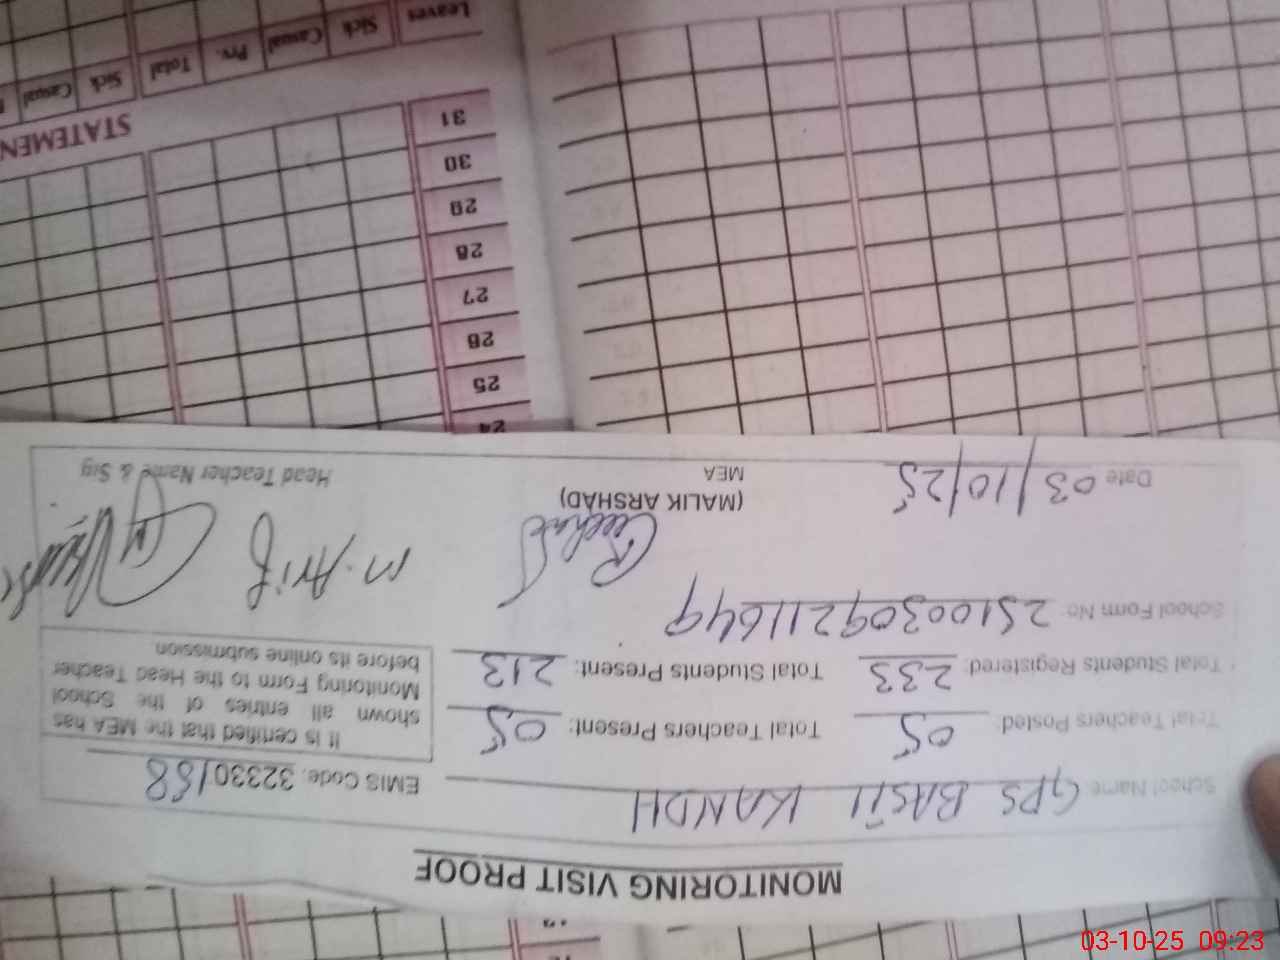 MONITORING VISIT PROOF
School Name GPS BASTI KANDH EMIS Code: 32330188
Total Teachers Posted: 05 Total Teachers Present: 05
Total Students Registered: 233 Total Students Present: 213
It is certified that the MEA has
shown all entries of the School
Monitoring Form to the Head Teacher
before its online submission
School Form No: 2510030921 1649
M. Arif
(MALIK ARSHAD)
Date 03/10/25 MEA Head Teacher Name & Sig
24
25
26
27
28
29
30
31
STATEMEN
Leaves Sick Casual Prv. Total Sick Casual
03-10-25 09:23